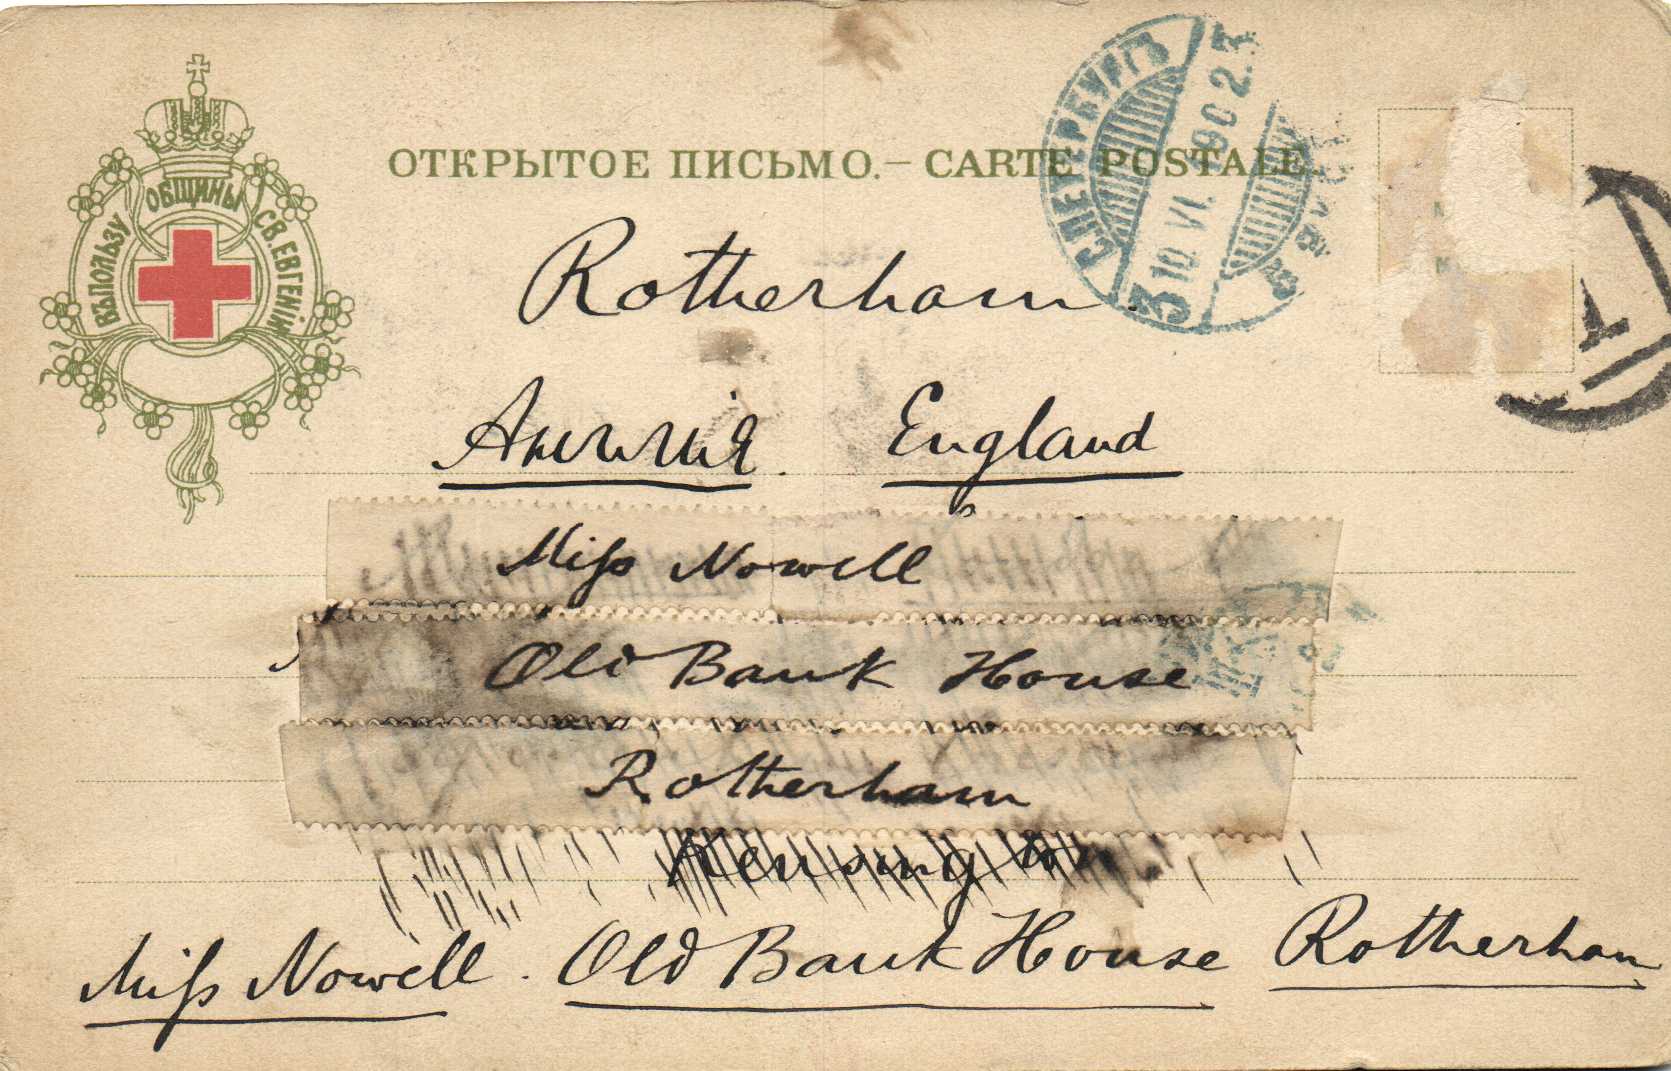 ВЪ ПОЛЬЗУ ОБЩИНЫ СВ. ЕВГЕНІИ
ОТКРЫТОЕ ПИСЬМО.— CARTE POSTALE.
С.ПЕТЕРБУРГЪ
3 10 VI. 1902.
Rotherham.
Англія. England
Miss Nowell
Old Bank House
Rotherham
Miss Nowell. Old Bank House Rotherham